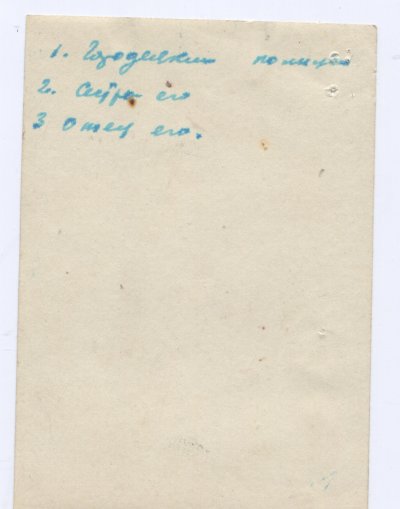 1. Городецкий полицай
2. Сестра его
3 Отец его.